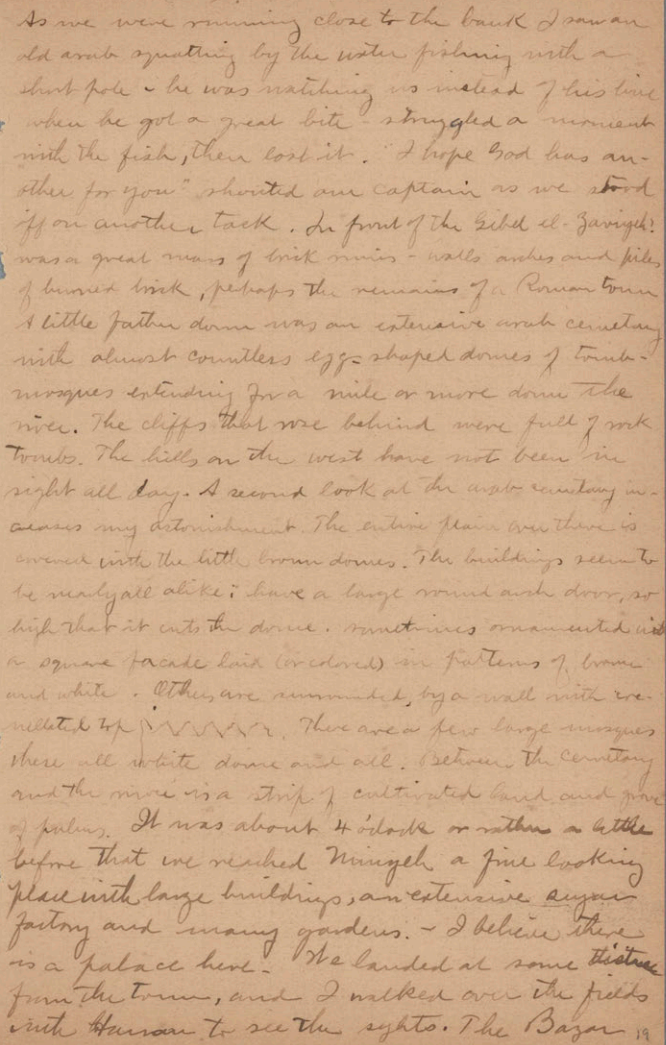 As we were running close to the bank I saw an
old arab squatting by the water fishing with a
short pole - he was watching us instead of his line
when he got a great bite - struggled a moment
with the fish, then lost it. "I hope God has an-
other for you" shouted our captain as we stood
off on another tack. In front of the Gibel el-
was a great mass of brick ruins - walls arches and piles
of burned brick, perhaps the remains of a Roman town
A little father down was an extensive arab cemetary
with almost countless egg-shaped domes of tomb-
mosques extending for a mile or more down the
river. The cliffs that rose behind were full of rock
tombs. The hills on the west have not been in
sight all day. A second look at the arab cemetary in-
creases my astonishment. The entire plain over there is
covered with the little brown domes. The buildings seem to
be nearly all alike; have a large round arch door, so
high that it cuts the dome. sometimes ornamented with
a square facade laid (or colored) in patterns of brown
and white. Others are surrounded by a wall with cre-
nellated top. There are a few large mosques
these all white dome and all. Between the cemetary
and the river is a strip of cultivated land and grove
of palms. It was about 4 o'clock or rather a little
before that we reached Minyeh a fine looking
place with large buildings, an extensive sugar
factory and many gardens. - I believe there
is a palace here - We landed at some distance
from the town, and I walked over the fields
with Hassan to see the sights. The Bazar
19